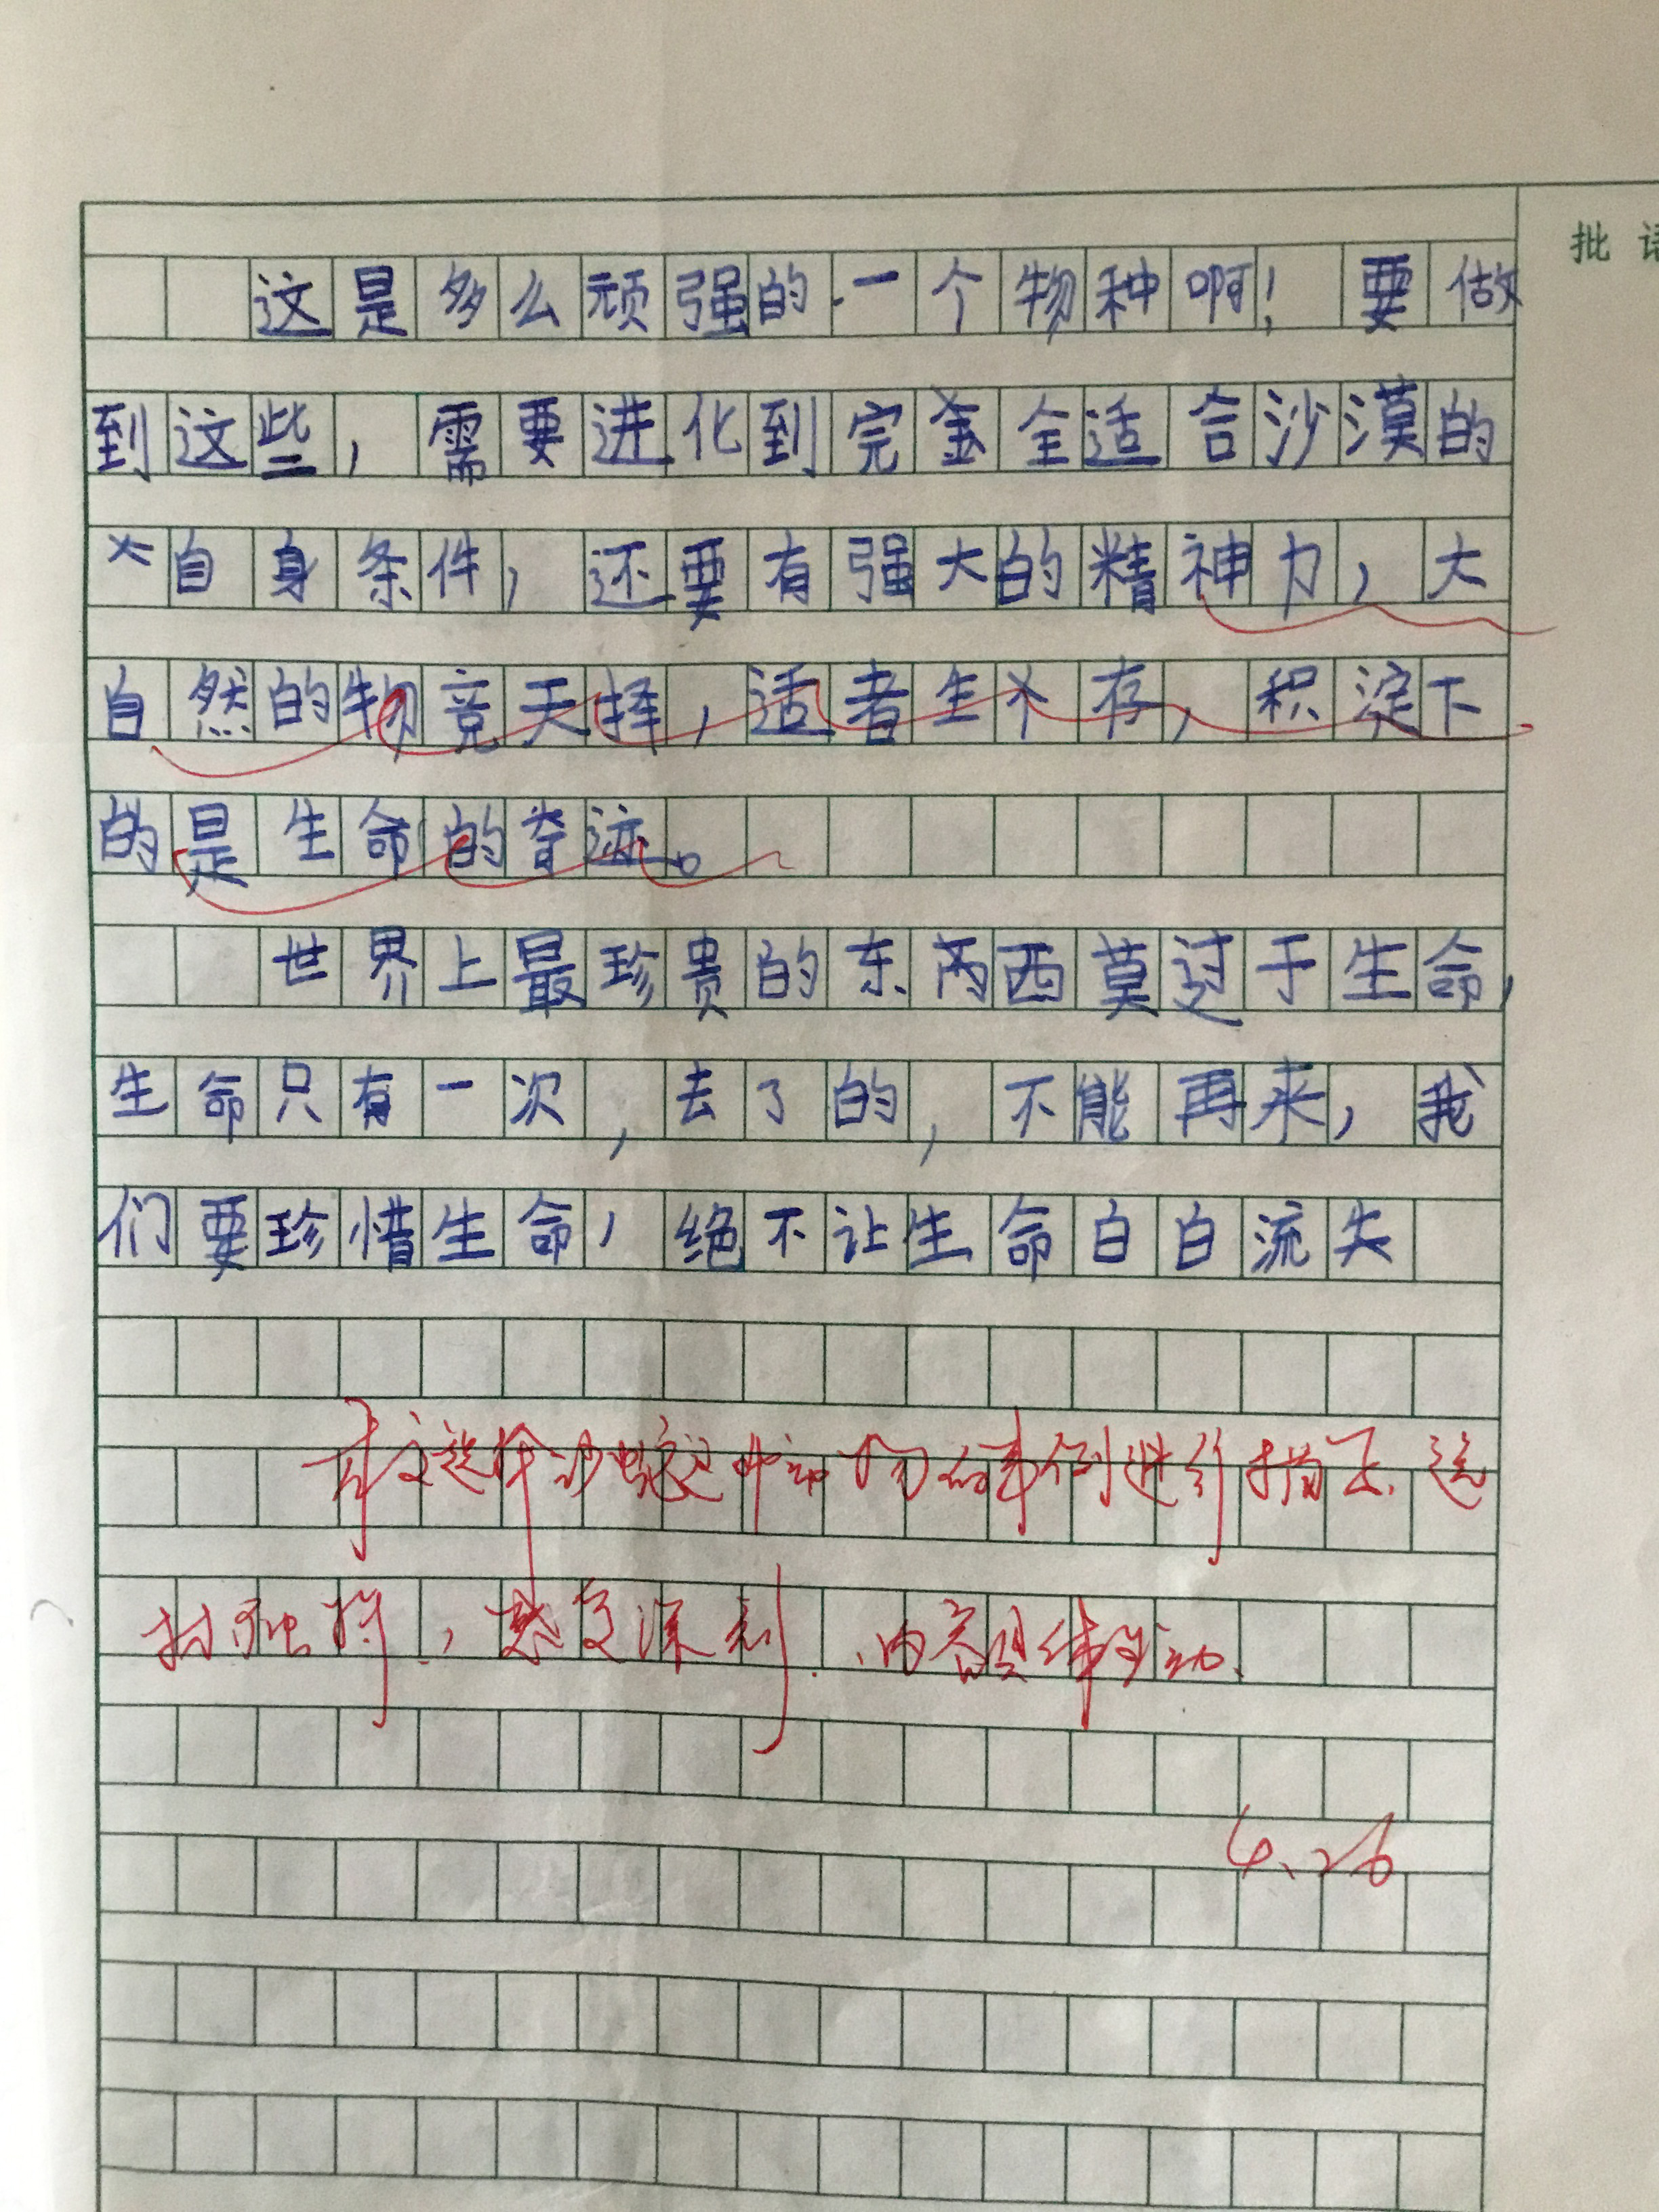 批语
这是多么顽强的一个物种啊！要做
到这些，需要进化到完全适合沙漠的
自身条件，还要有强大的精神力，大
自然的物竞天择，适者生存，积淀下
的是生命的奇迹。
世界上最珍贵的东西莫过于生命，
生命只有一次，去了的，不能再来，我
们要珍惜生命，绝不让生命白白流失
本文选择沙蜥这种动物的事例进行描写，选
材独特，感受深刻，内容具体生动。
4.26